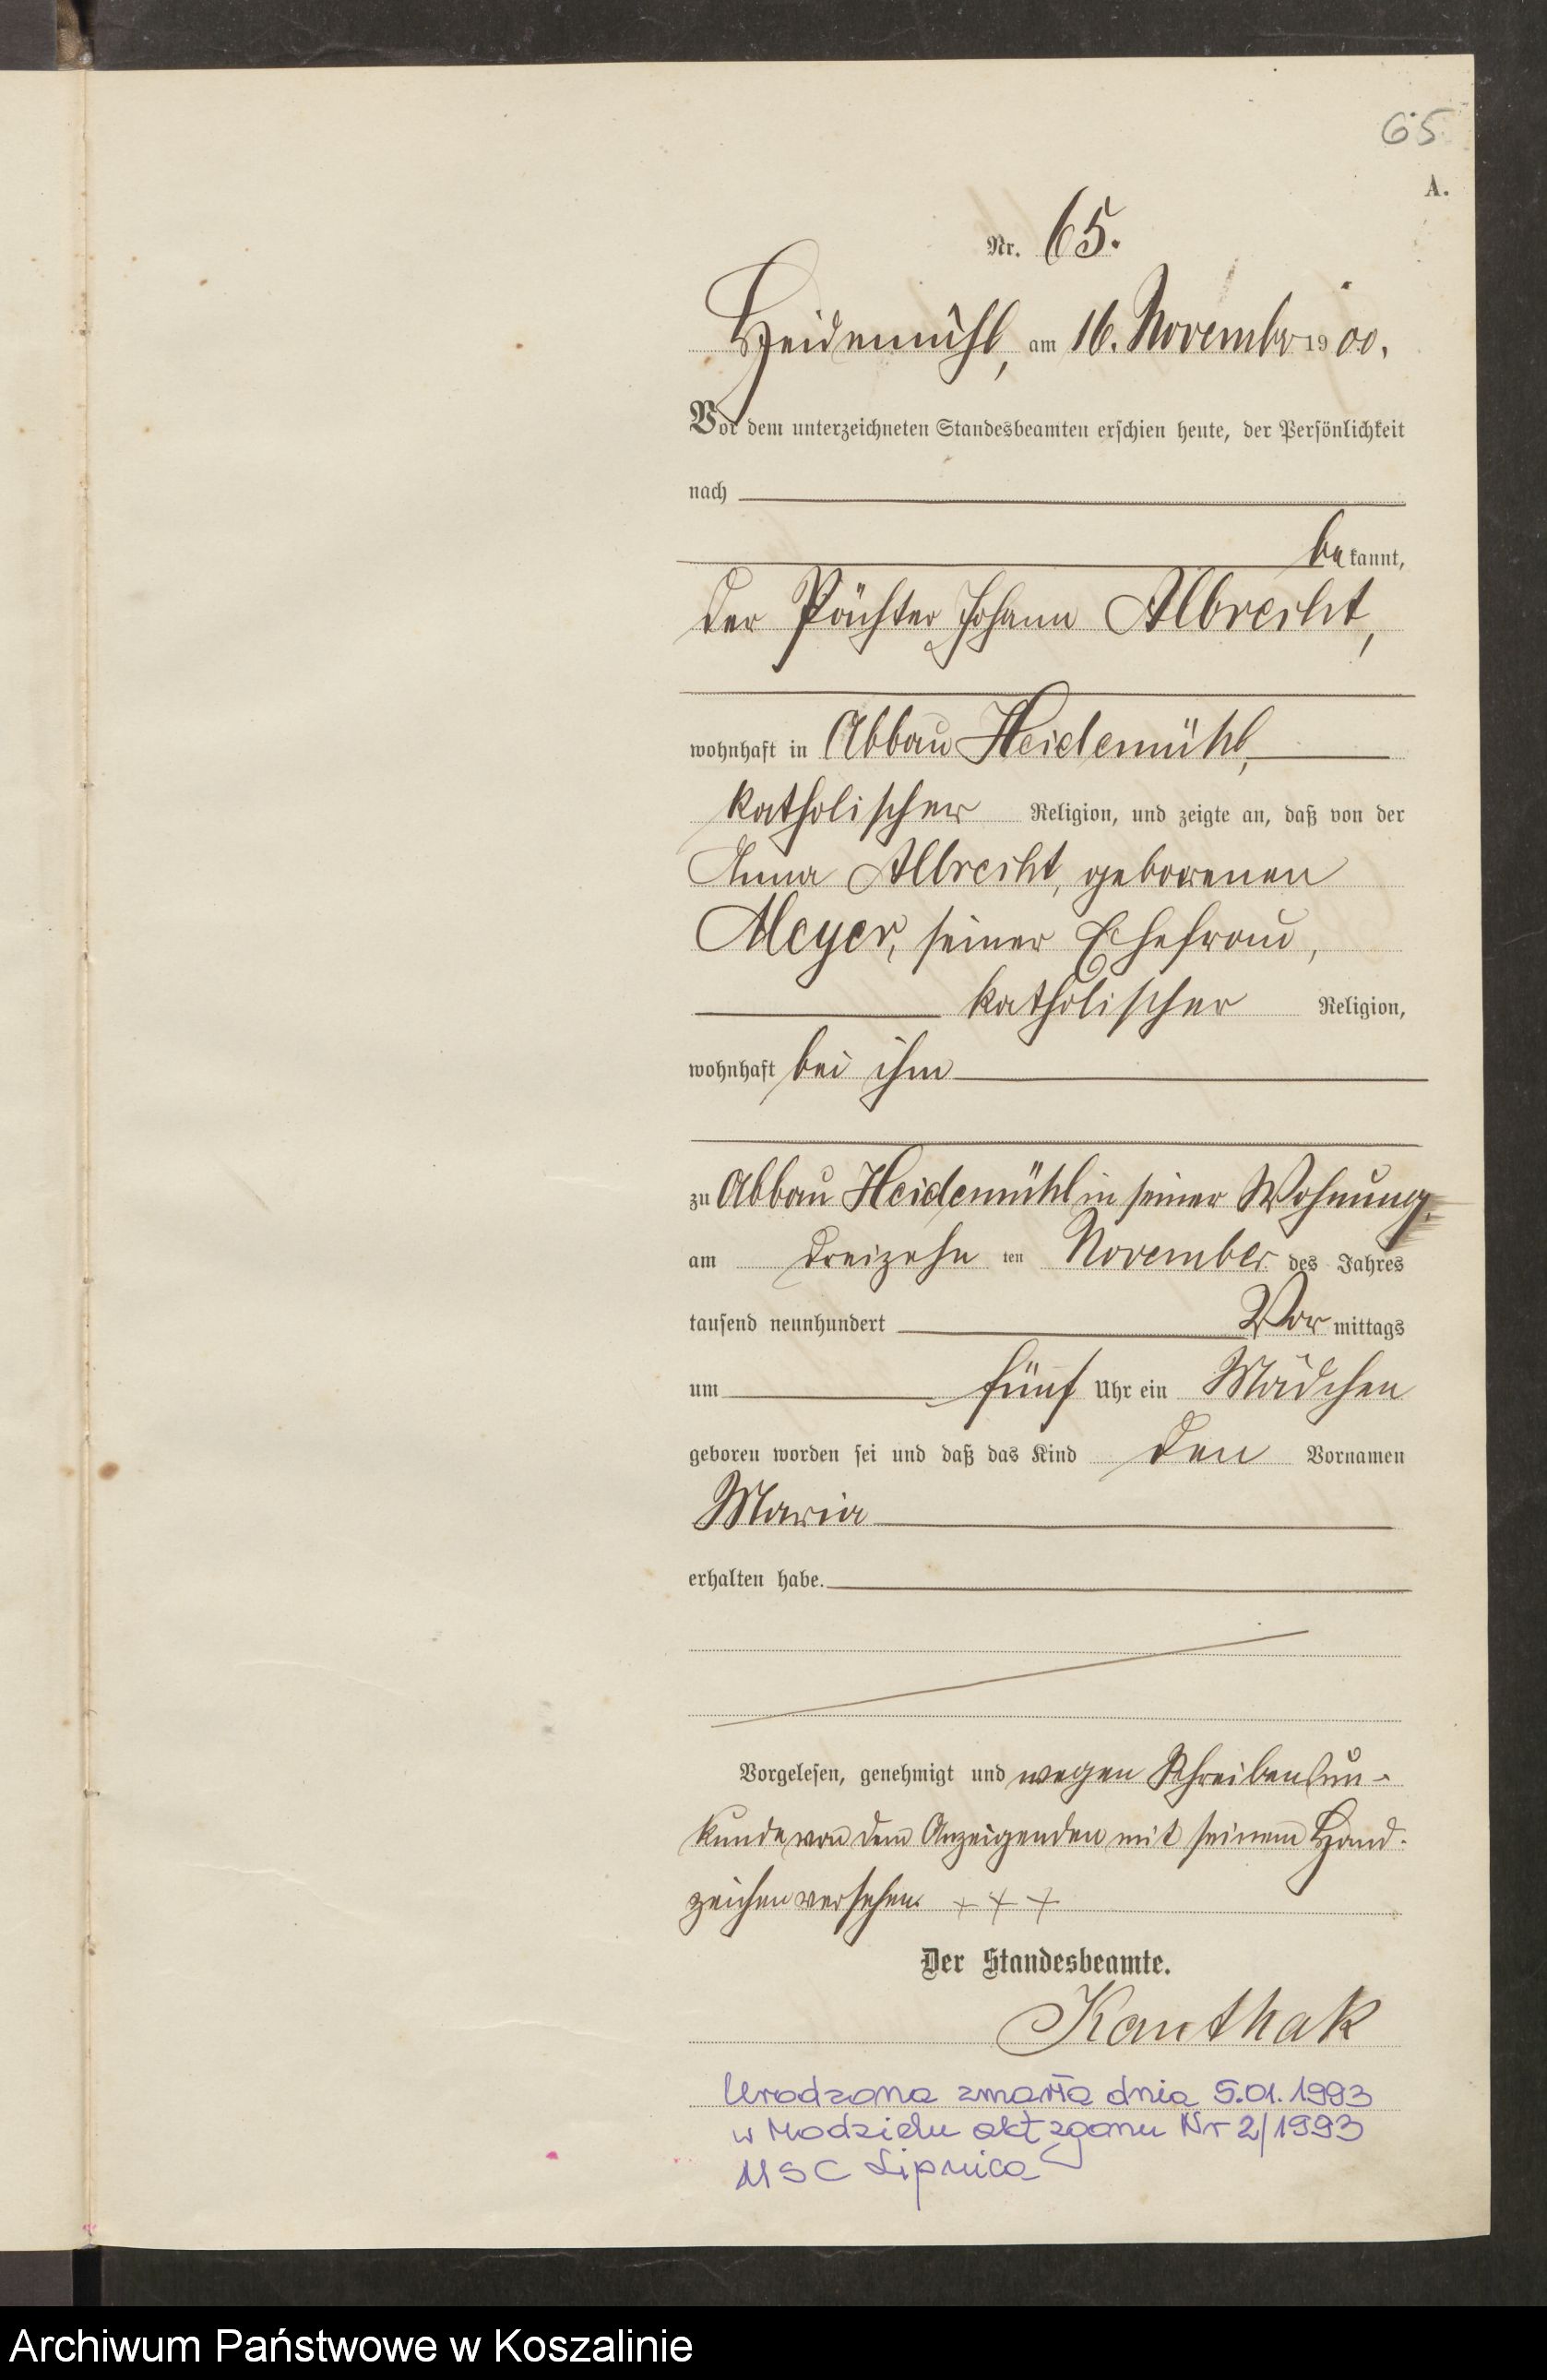 65
A.
Nr. 65.
Heidemühl, am 16. November 1900.
Vor dem unterzeichneten Standesbeamten erschien heute, der Persönlichkeit
nach
bekannt,
der Pächter Johann Albrecht,
wohnhaft in Abbau Heidemühl,
katholischer Religion, und zeigte an, daß von der
Anna Albrecht, geborenen
Meyer, seiner Ehefrau,
katholischer Religion,
wohnhaft bei ihm
zu Abbau Heidemühl in seiner Wohnung,
am dreizehnten November des Jahres
tausend neunhundert Vormittags
um fünf Uhr ein Mädchen
geboren worden sei und daß das Kind den Vornamen
Maria
erhalten habe.
Vorgelesen, genehmigt und wegen Schreibensun-
kunde von dem Anzeigenden mit seinem Hand-
zeichen versehen. + + +
Der Standesbeamte.
Kanthak
Urodzona zmarła dnia 5.01.1993
w Modzielu akt zgonu Nr 2/1993
USC Lipnica
Archiwum Państwowe w Koszalinie